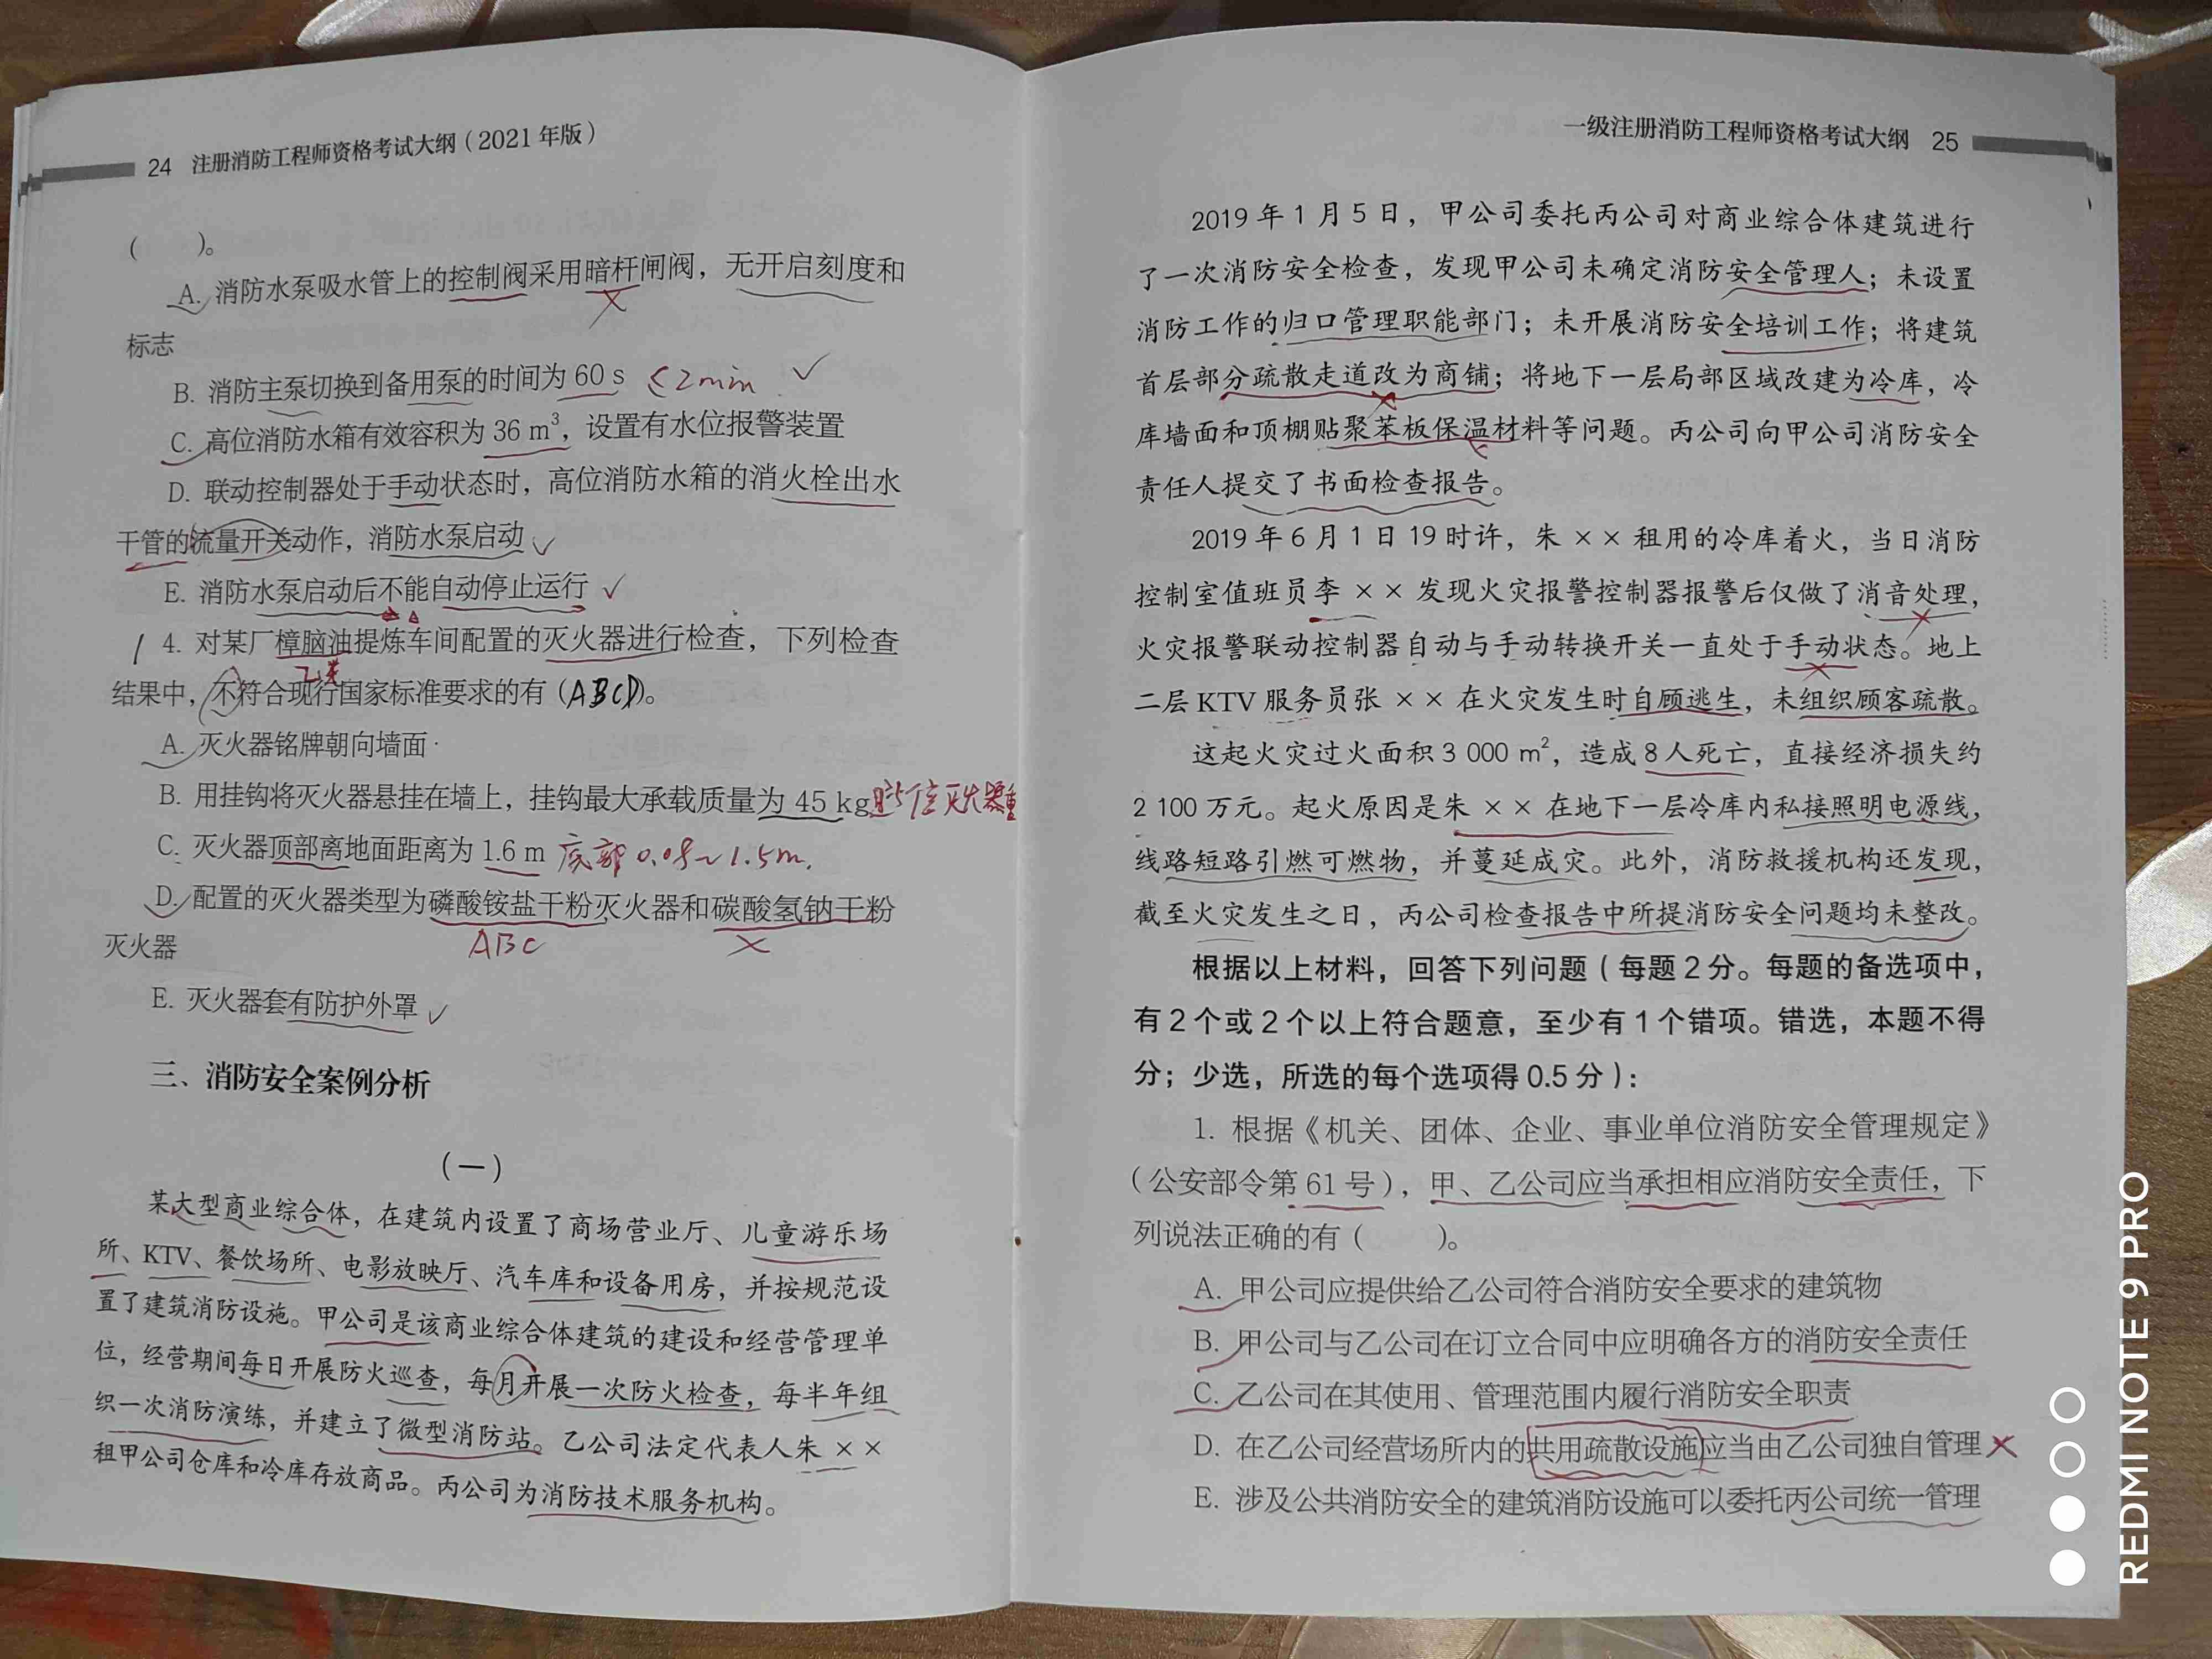 24 注册消防工程师资格考试大纲（2021年版）
（ ）。
A. 消防水泵吸水管上的控制阀采用暗杆闸阀，无开启刻度和
标志
B. 消防主泵切换到备用泵的时间为 60 s ≤2min ✓
C. 高位消防水箱有效容积为 36 m³，设置有水位报警装置
D. 联动控制器处于手动状态时，高位消防水箱的消火栓出水
干管的流量开关动作，消防水泵启动 ✓
E. 消防水泵启动后不能自动停止运行 ✓
4. 对某厂樟脑油提炼车间配置的灭火器进行检查，下列检查
乙类
结果中，不符合现行国家标准要求的有（ABCD）。
A. 灭火器铭牌朝向墙面
B. 用挂钩将灭火器悬挂在墙上，挂钩最大承载质量为 45 kg 5倍灭火器重
C. 灭火器顶部离地面距离为 1.6 m 底部0.08~1.5m.
D. 配置的灭火器类型为磷酸铵盐干粉灭火器和碳酸氢钠干粉
ABC ×
灭火器
E. 灭火器套有防护外罩 ✓
三、消防安全案例分析
（一）
某大型商业综合体，在建筑内设置了商场营业厅、儿童游乐场
所、KTV、餐饮场所、电影放映厅、汽车库和设备用房，并按规范设
置了建筑消防设施。甲公司是该商业综合体建筑的建设和经营管理单
位，经营期间每日开展防火巡查，每月开展一次防火检查，每半年组
织一次消防演练，并建立了微型消防站。乙公司法定代表人朱××
租甲公司仓库和冷库存放商品。丙公司为消防技术服务机构。
一级注册消防工程师资格考试大纲 25
2019年1月5日，甲公司委托丙公司对商业综合体建筑进行
了一次消防安全检查，发现甲公司未确定消防安全管理人；未设置
消防工作的归口管理职能部门；未开展消防安全培训工作；将建筑
首层部分疏散走道改为商铺；将地下一层局部区域改建为冷库，冷
库墙面和顶棚贴聚苯板保温材料等问题。丙公司向甲公司消防安全
责任人提交了书面检查报告。
2019年6月1日19时许，朱××租用的冷库着火，当日消防
控制室值班员李××发现火灾报警控制器报警后仅做了消音处理，
火灾报警联动控制器自动与手动转换开关一直处于手动状态。地上
二层KTV服务员张××在火灾发生时自顾逃生，未组织顾客疏散。
这起火灾过火面积3 000 m²，造成8人死亡，直接经济损失约
2 100万元。起火原因是朱××在地下一层冷库内私接照明电源线，
线路短路引燃可燃物，并蔓延成灾。此外，消防救援机构还发现，
截至火灾发生之日，丙公司检查报告中所提消防安全问题均未整改。
根据以上材料，回答下列问题（每题2分。每题的备选项中，
有2个或2个以上符合题意，至少有1个错项。错选，本题不得
分；少选，所选的每个选项得0.5分）：
1. 根据《机关、团体、企业、事业单位消防安全管理规定》
（公安部令第61号），甲、乙公司应当承担相应消防安全责任，下
列说法正确的有（ ）。
A. 甲公司应提供给乙公司符合消防安全要求的建筑物
B. 甲公司与乙公司在订立合同中应明确各方的消防安全责任
C. 乙公司在其使用、管理范围内履行消防安全职责
D. 在乙公司经营场所内的共用疏散设施应当由乙公司独自管理 ×
E. 涉及公共消防安全的建筑消防设施可以委托丙公司统一管理
REDMI NOTE 9 PRO